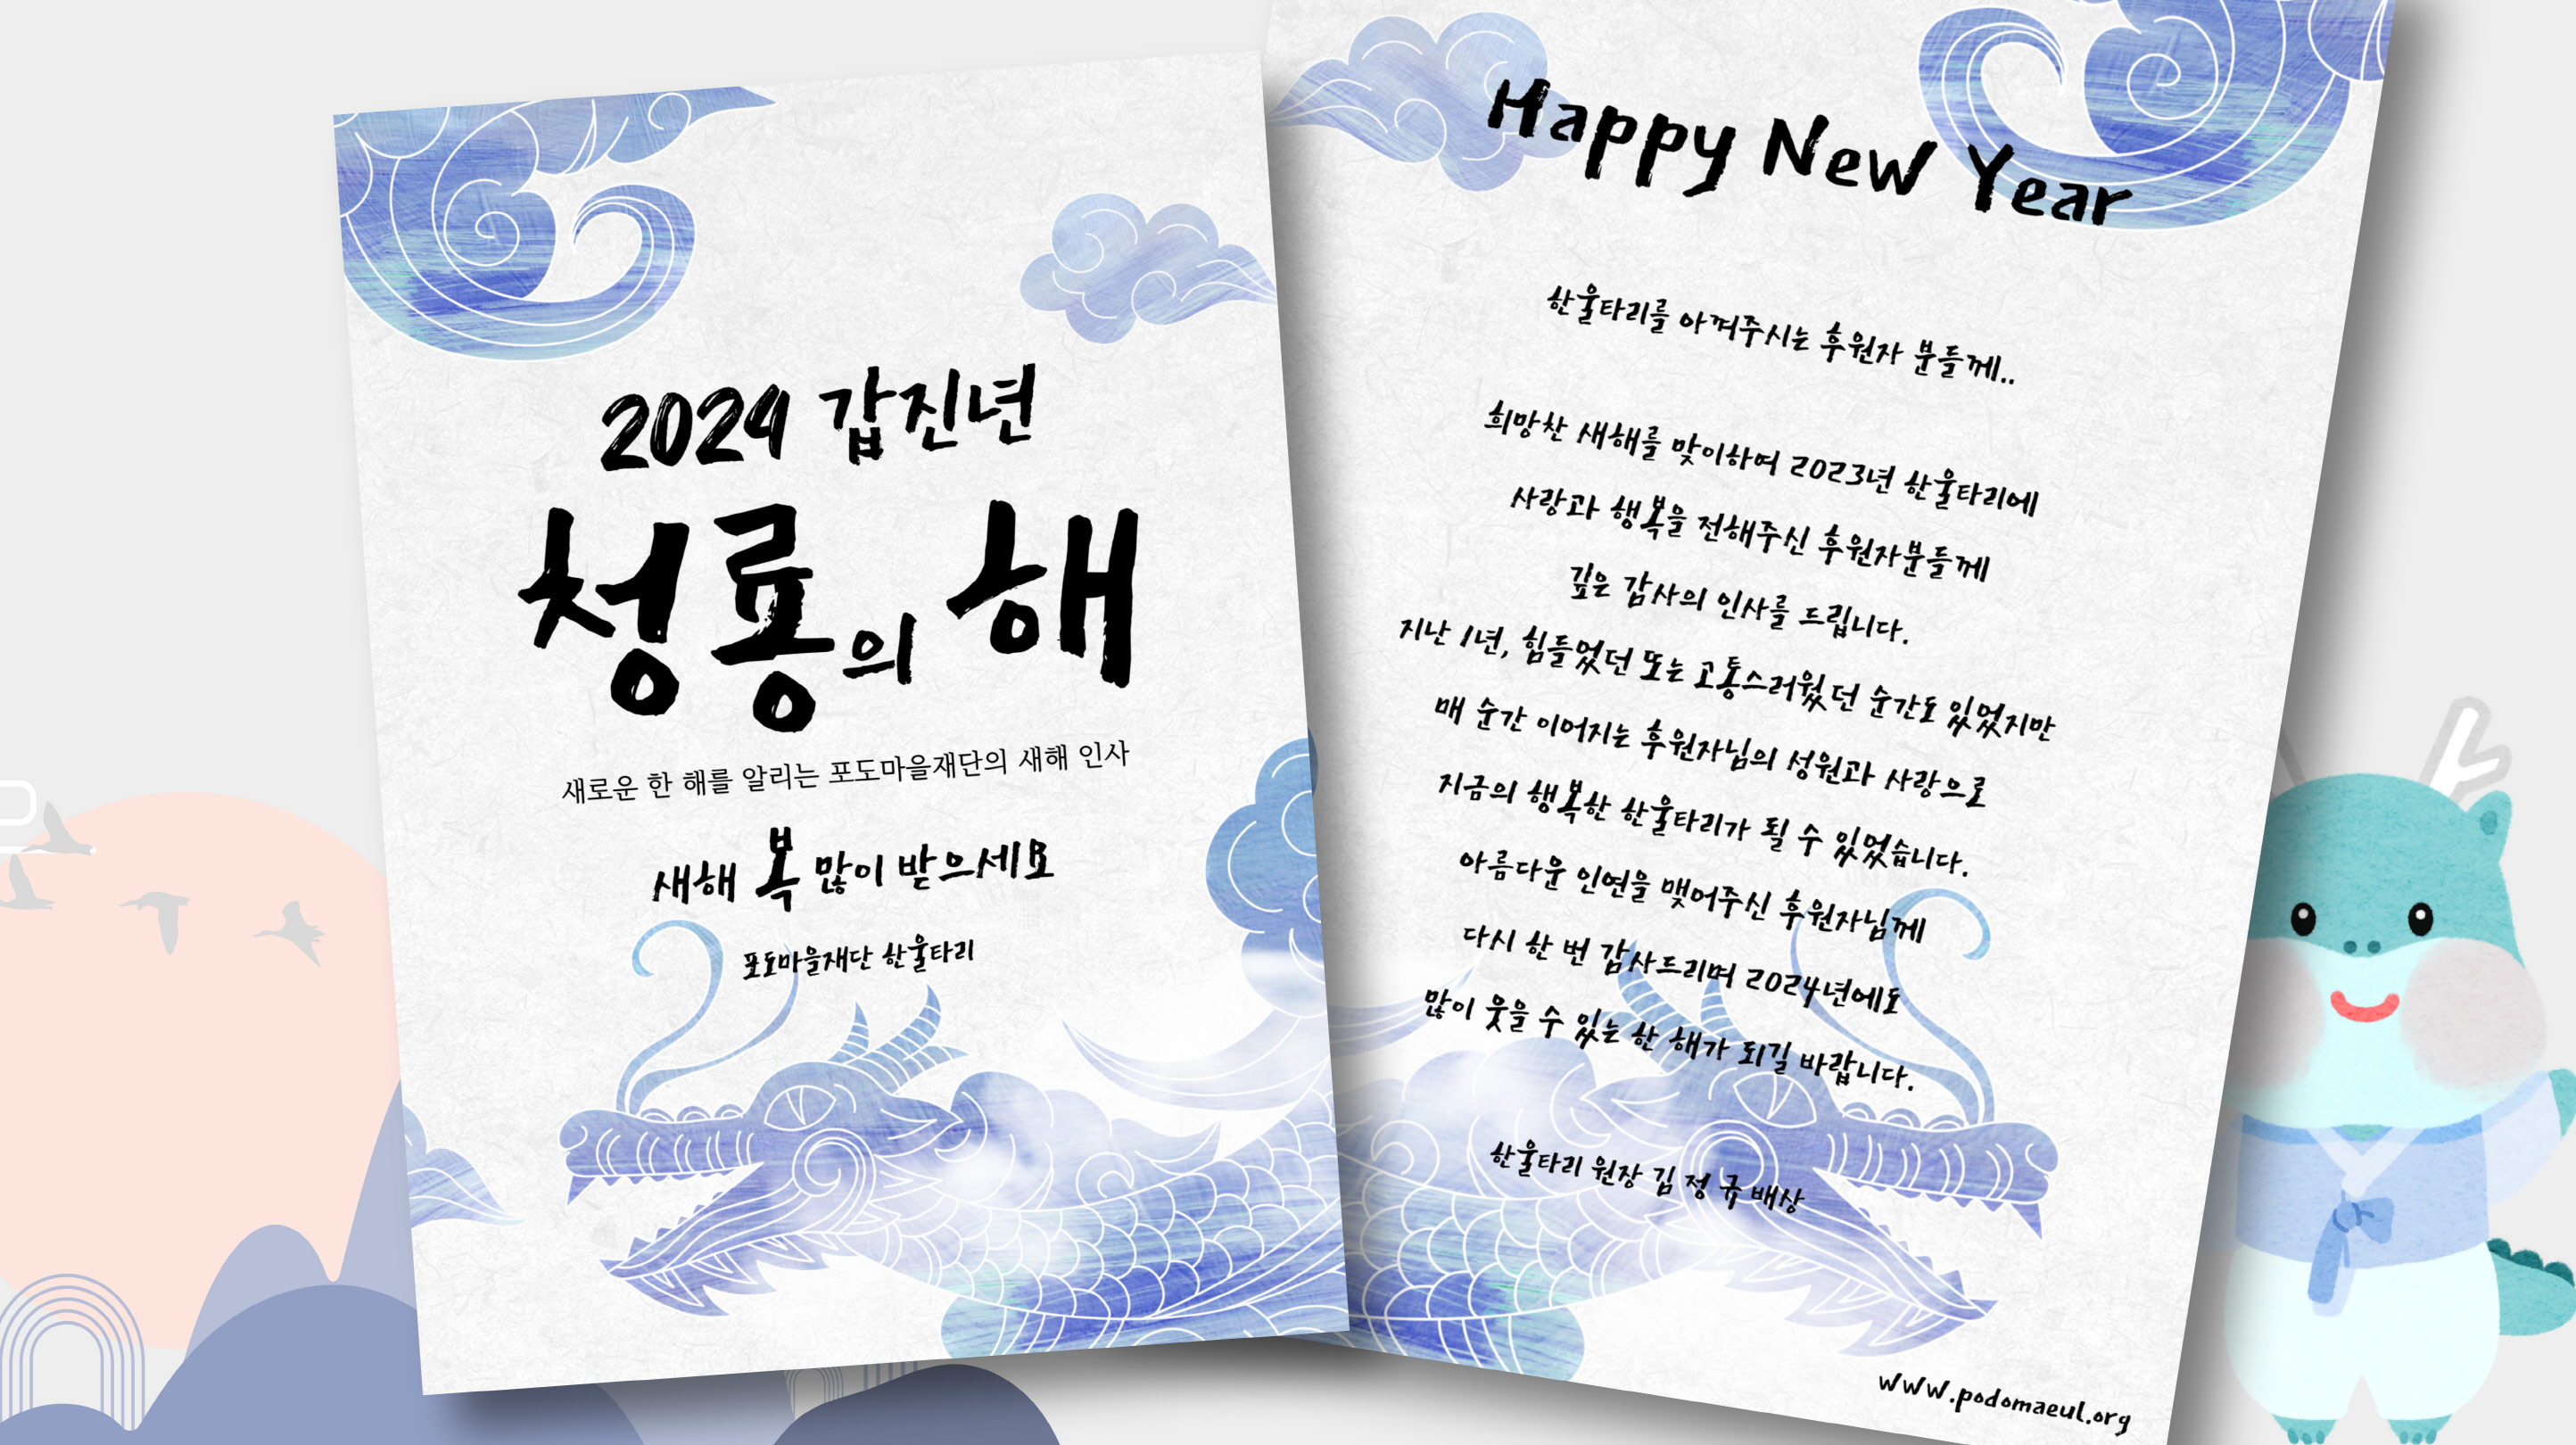 2024 갑진년
청룡의 해
새로운 한 해를 알리는 포도마을재단의 새해 인사
새해 복 많이 받으세요
포도마을재단 한울타리
Happy New Year
한울타리를 아껴주시는 후원자 분들께..
희망찬 새해를 맞이하여 2023년 한울타리에
사랑과 행복을 전해주신 후원자분들께
깊은 감사의 인사를 드립니다.
지난 1년, 힘들었던 또는 고통스러웠던 순간도 있었지만
매 순간 이어지는 후원자님의 성원과 사랑으로
지금의 행복한 한울타리가 될 수 있었습니다.
아름다운 인연을 맺어주신 후원자님께
다시 한 번 감사드리며 2024년에도
많이 웃을 수 있는 한 해가 되길 바랍니다.
한울타리 원장 김 정 규 배상
www.podomaeul.org